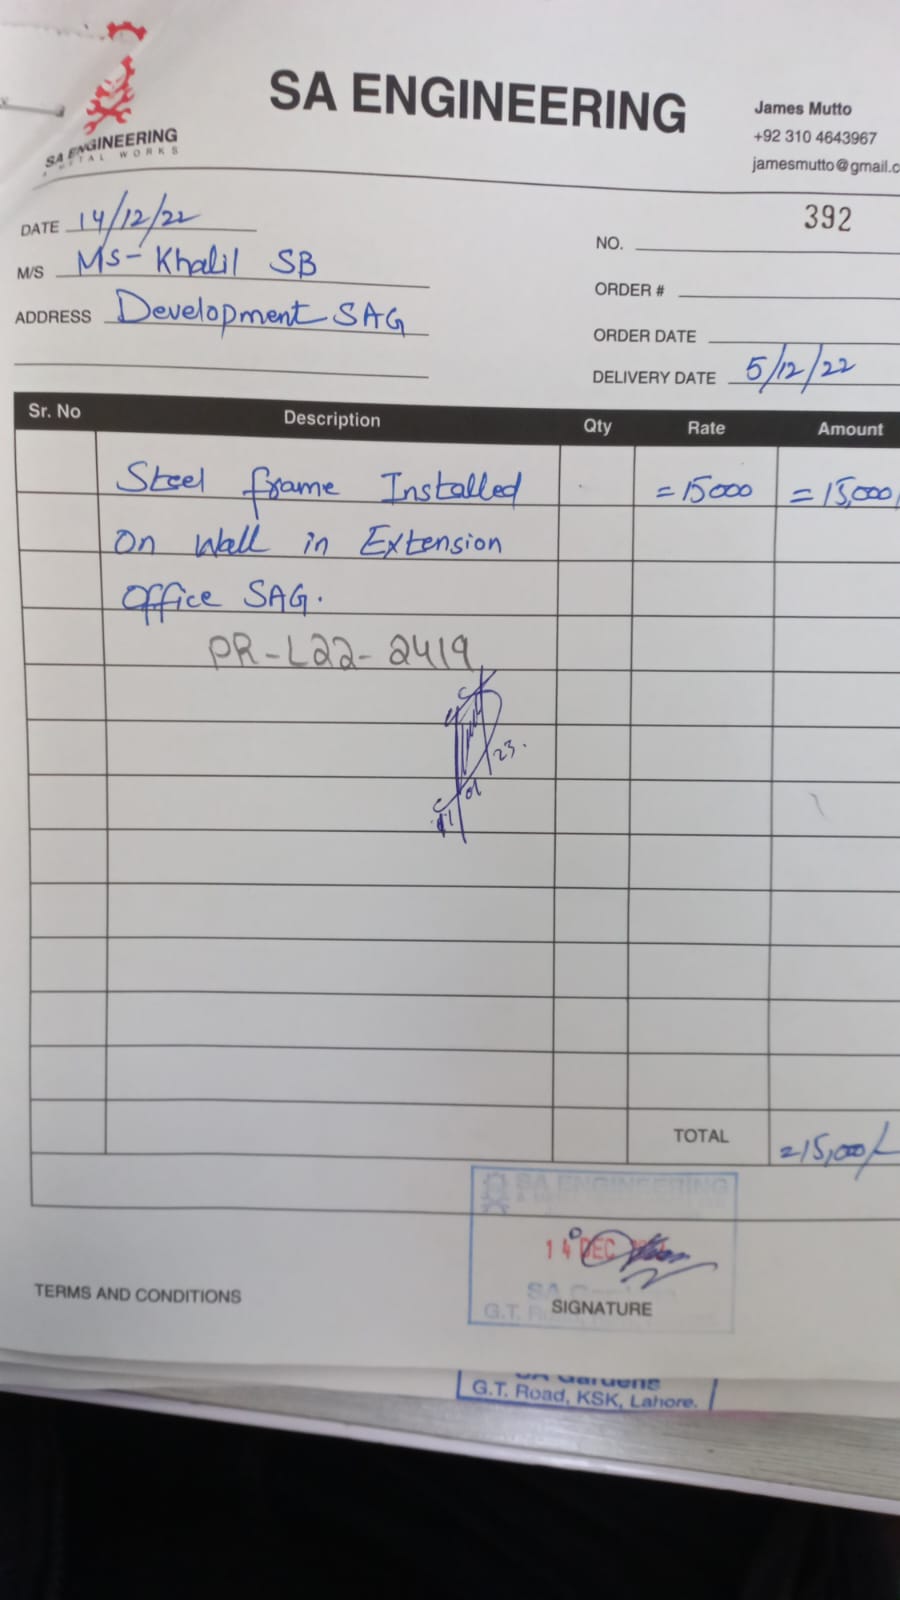 SA ENGINEERING
& METAL WORKS
SA ENGINEERING
James Mutto
+92 310 4643967
jamesmutto@gmail.c
DATE 14/12/22
392
NO.
M/S Ms- Khalil SB
ORDER #
ADDRESS Development SAG
ORDER DATE
DELIVERY DATE 5/12/22
Sr. No Description Qty Rate Amount
Steel frame Installed =15000 =15,000/
On Wall in Extension
Office SAG.
PR-L22-2419
23.
01
TOTAL =15,000/-
SA ENGINEERING
14 DEC
SA
G.T.
TERMS AND CONDITIONS
SIGNATURE
SA Gardens
G.T. Road, KSK, Lahore.